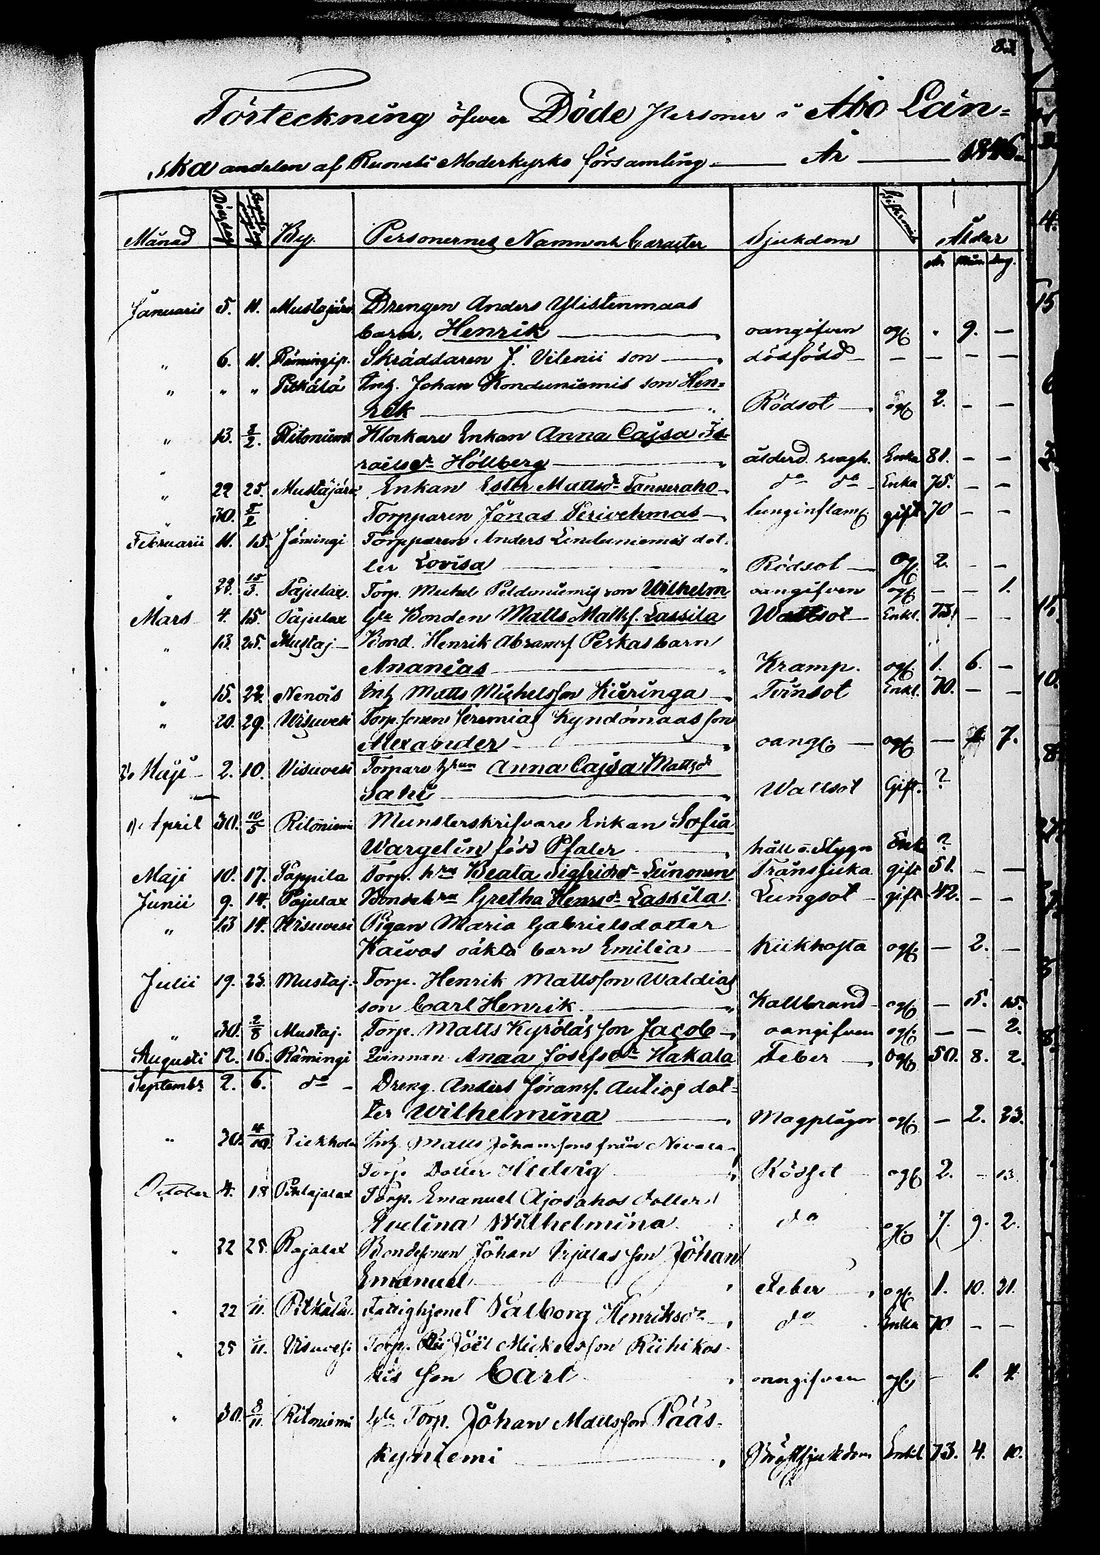 83
Förteckning öfwer Döde Personer i Åbo Län=
ska andelen af Ruovesi Moderkyrko församling År 1846.
Månad Dödsdag By. Personernes Namn och Caracter Sjukdom Ålder
År Mån dag.
Januarii 5. 11. Mustajärvi Drengen Anders Ylistenmaas
barn, Henrik oangifven ogft . 9. —
" 6. 11. Skräddaren J. Vilenii son dödfödd — — — —
" " " Pitkälä Inh. Johan Konduniemis son Hen=
rik Rödsot ogft 2. — —
" 13. 1/2. Ritoniemi Klockare Enkan Anna Cajsa Is=
raelsdr Höllberg ålderd. svagh. Enka 81. — —
" 22 25. Mustajärvi Enkan Ester Mattsdr do do Enka 75. — —
30. Torpparen Jonas lunginflam gift 70 — —
Februarii 11. 15. Jämingi Torpparen Anders Linduniemis dot=
ter Lovisa Rödsot ogft 2. — —
" 22. 15/3. Pajulax. Torp. Michel son Wilhelm oangifven ogft — — 1.
Mars 4. 15. Pajulax Gle Bonden Matts Mattsf. Lassila Wattsot Enkl. 73.
" 13. 25. Mustaj Bond. Henrik Abramsf Perkas barn
Ananias Kramp. ogft 1. 6. —
" 15. 22. Inh Matts Michelsson Kieringa Tvinsot Enkl. 70. — —
" 20. 29. Visuvesi Torp. sonen Jeremias Kyndömaas son
Alexander oangft ogft — 7.
Maji 2. 10. Visuvesi Torpare hrun Anna Cajsa Mattsdr
Wattsot Gift. ?
April 30. 10/5 Ritoniemi Munsterskrifvare Enkan Sofia
Wargelin född Pfaler håll o Stygn Enk ?
Maji 10. 17. Pappila Torp. hru Beata Sigfridsdr Lunonen Transjuka gift 51. — —
Junii 9. 14. Pajulax Bonde hru Gretha Henrsdr Lassila. Lungsot gift 42. —
" 13 14. Visuvesi Pigan Maria Gabrielsdotter
Kaivos oäkta barn Emilia kikhosta ogft — 2. —
Julii 19. 25. Mustaj. Torp. Henrik Mattsson Waldias
son Carl Henrik Kallbrand ogft — 5. 15.
" 30. 2/8 Mustaj. Torp. Matts Kyrölas son Jacob oangifven ogft. — — 2.
Augusti 12. 16. Rämingi Qvinnan Anna Josefsdr Hakala Feber Ogft 50. 8. 2.
Septembr 2. 6. do Dreng. Anders Joransf. Autios dot=
ter Wilhelmina Magplågor ogft — 2. 23.
" 30. 4/10. Inh. Matts Johanssons från
Torp Dotter Hedvig Rödsot ogft 2. — 13
October 4. 18 Torp. Emanuel Ajosahos dotter
Evelina Wilhelmina do ogft 7. 9. 2.
" 22 25. Pajulax Bondesonen Johan son Johan
Emanuel Feber ogft 1. 10. 21.
" 22 1/11. Pitkälä Fattighjonet Valborg Henriksdr do Enka 70 — —
" 25 1/11. Visuvesi Torp. Joël Mickelsson Riihikos=
kis son Carl oangifven ogft. — 1. 4.
" 30. 8/11. Ritoniemi Gle Torp. Johan Mattsson Pääs=
kyniemi Bröstsjukdom Enkl 73. 4. 10.